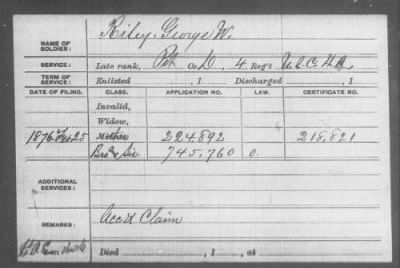 NAME OF SOLDIER: Riley, George W.
SERVICE: Late rank, Pvt Co. D, 4 Reg't U.S.C.H.A.
TERM OF SERVICE: Enlisted , 1 Discharged , 1
DATE OF FILING. CLASS. APPLICATION NO. LAW. CERTIFICATE NO.
Invalid,
Widow,
1876 Mother 224.892 218.821
Bro & Sis 745.760 0.
ADDITIONAL SERVICES:
REMARKS: Acc'd Claim
Died , 1 , at